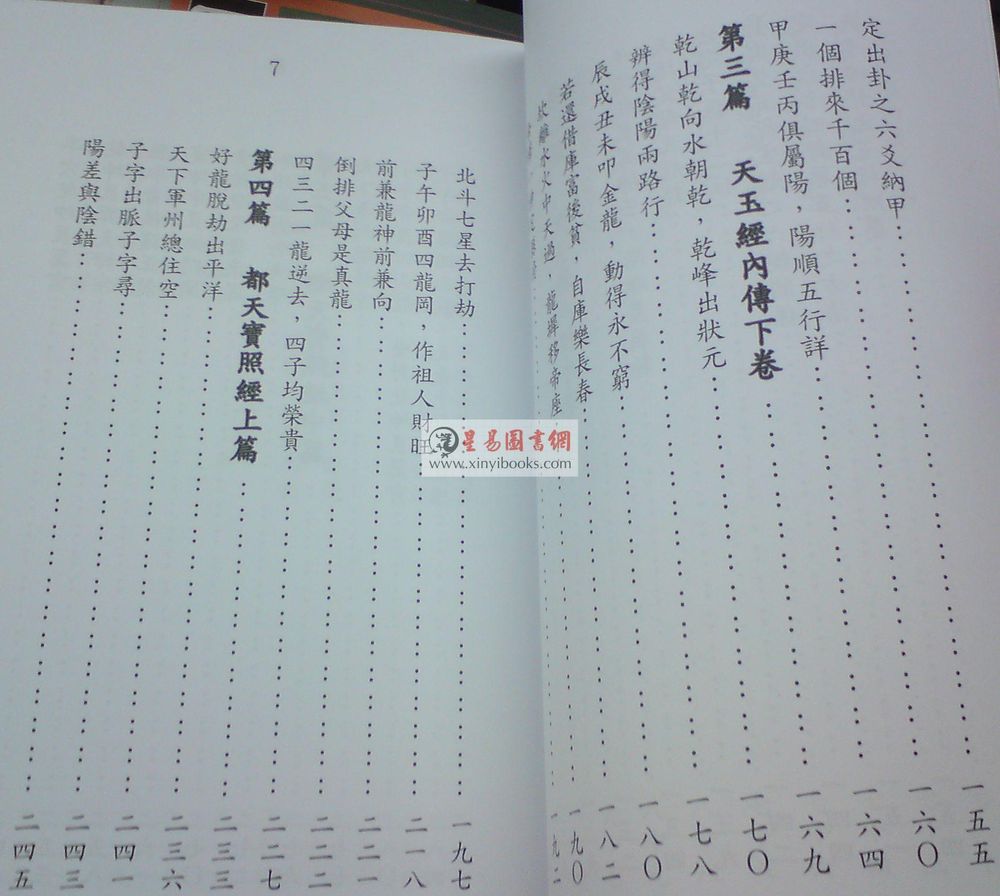 定出卦之六爻納甲⋯⋯⋯⋯一五五
一個排來千百個⋯⋯⋯⋯一六〇
甲庚壬丙俱屬陽，陽順五行詳⋯⋯⋯⋯一六四
第三篇　天玉經內傳下卷⋯⋯⋯⋯一六九
乾山乾向水朝乾，乾峰出狀元⋯⋯⋯⋯一七〇
辨得陰陽兩路行⋯⋯⋯⋯一七八
辰戌丑未叩金龍，動得永不窮⋯⋯⋯⋯一八〇
若還借庫富後貧，自庫樂長春⋯⋯⋯⋯一八二
坎離水火中天過，龍墀移帝座⋯⋯⋯⋯一九〇
一九二
北斗七星去打劫⋯⋯⋯⋯一九七
子午卯酉四龍岡，作祖人財旺⋯⋯⋯⋯二一八
前兼龍神前兼向⋯⋯⋯⋯二二一
倒排父母是真龍⋯⋯⋯⋯二二二
四三二一龍逆去，四子均榮貴⋯⋯⋯⋯二二七
第四篇　都天寶照經上篇⋯⋯⋯⋯二三三
好龍脫劫出平洋⋯⋯⋯⋯二三六
天下軍州總住空⋯⋯⋯⋯二四一
子字出脈子字尋⋯⋯⋯⋯二四三
陽差與陰錯⋯⋯⋯⋯二四五
7
星易圖書網
www.xinyibooks.com